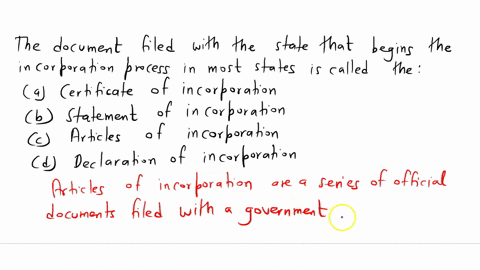 The document filed with the state that begins the
incorporation process in most states is called the:
(a) Certificate of incorporation
(b) Statement of incorporation
(c) Articles of incorporation
(d) Declaration of incorporation
Articles of incorporation are a series of official
documents filed with a government